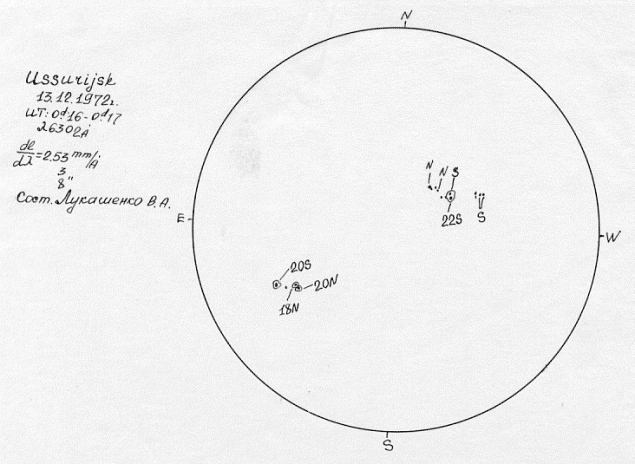 Ussurijsk
13.12.1972г.
UT: 0ᵈ16 - 0ᵈ17
λ6302Å
dl/dλ = 2.53 mm/Å
3
8"
Сост. Лукашенко В.А.
N
N N S
22S S
E
W
20S
20N
18N
S